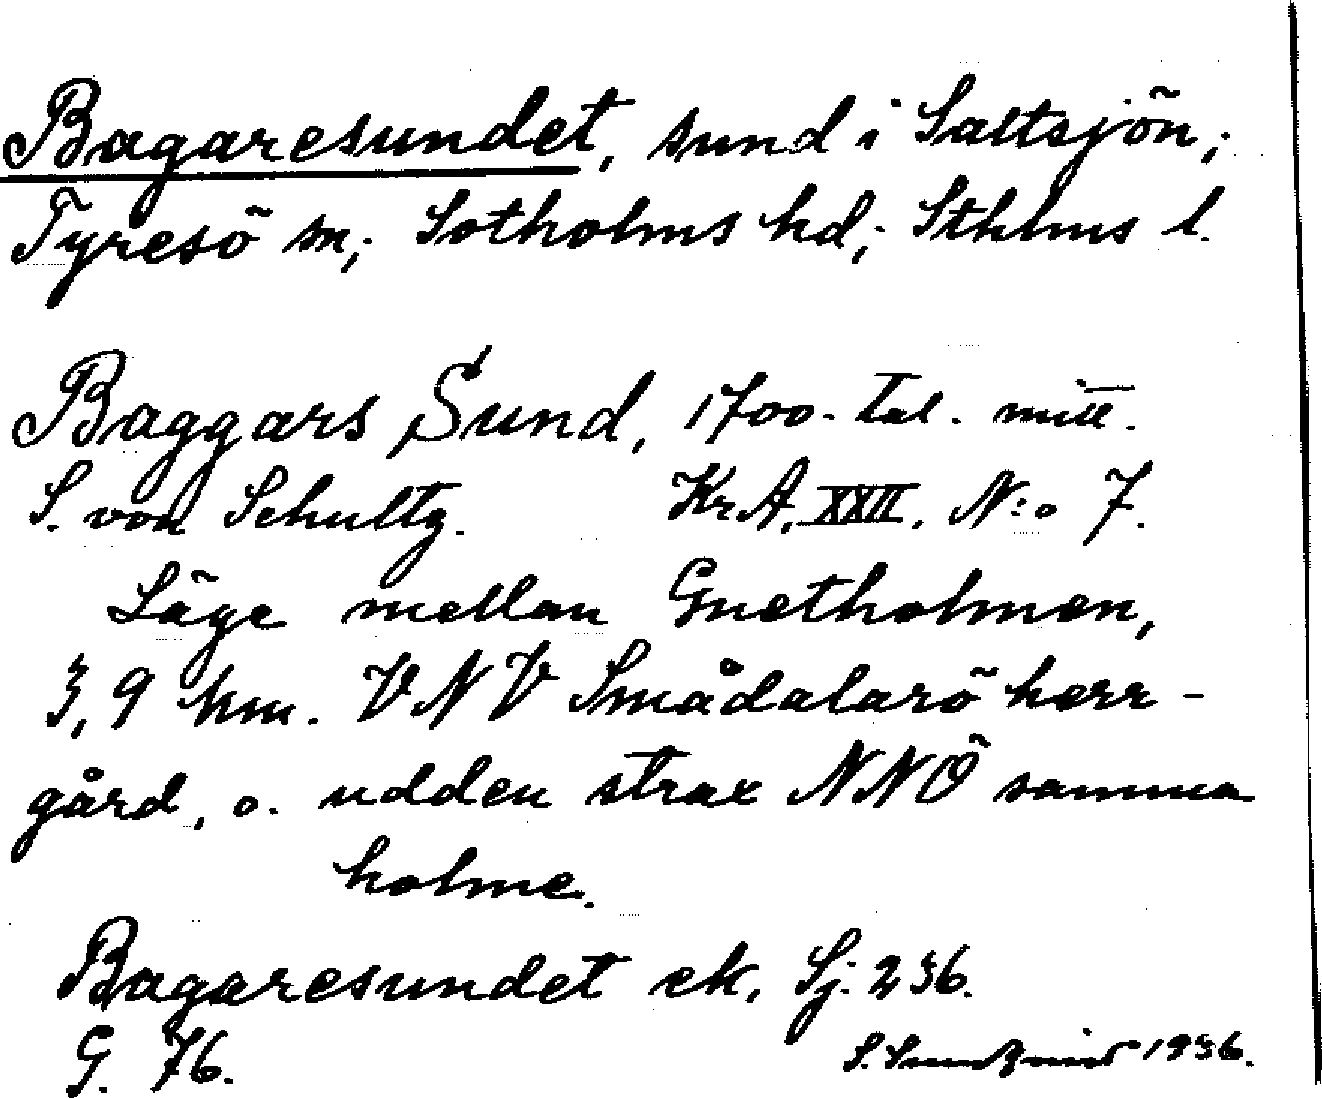 Bagaresundet, sund i Saltsjön;
Tyresö sn; Sotholms hd; Sthlms l.
Baggars Sund, 1700-tal. mitt.
S. von Schultz. KrA. XXII. N:o 7.
Läge mellan Gnetholmen,
3,9 km. VNV Smådalarö herr-
gård, o. udden strax NNÖ samma
holme.
Bagaresundet ek. Sj. 236.
G. 76. S. 1936.